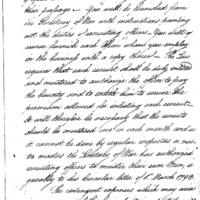 their passage. You will be furnished from
the Secretary of War with instructions pointing
out the duties of recruiting officers. You will of
course furnish each officer whom you employ
on this business with a copy thereof. The Law
requires that each recruit shall be
and mustered to authorize the officer to pay
the bounty and to entitle him to receive the
premium allowed for enlisting each recruit.
As will therefore be necessary that the recruits
should be mustered once in each month and as
it cannot be done by regular inspectors or mus-
ter masters the Secretary of War has authorized
recruiting officers to muster their own men, a-
greeably to his Circular letter of 1st March 1793.
The contingent expenses which may arise